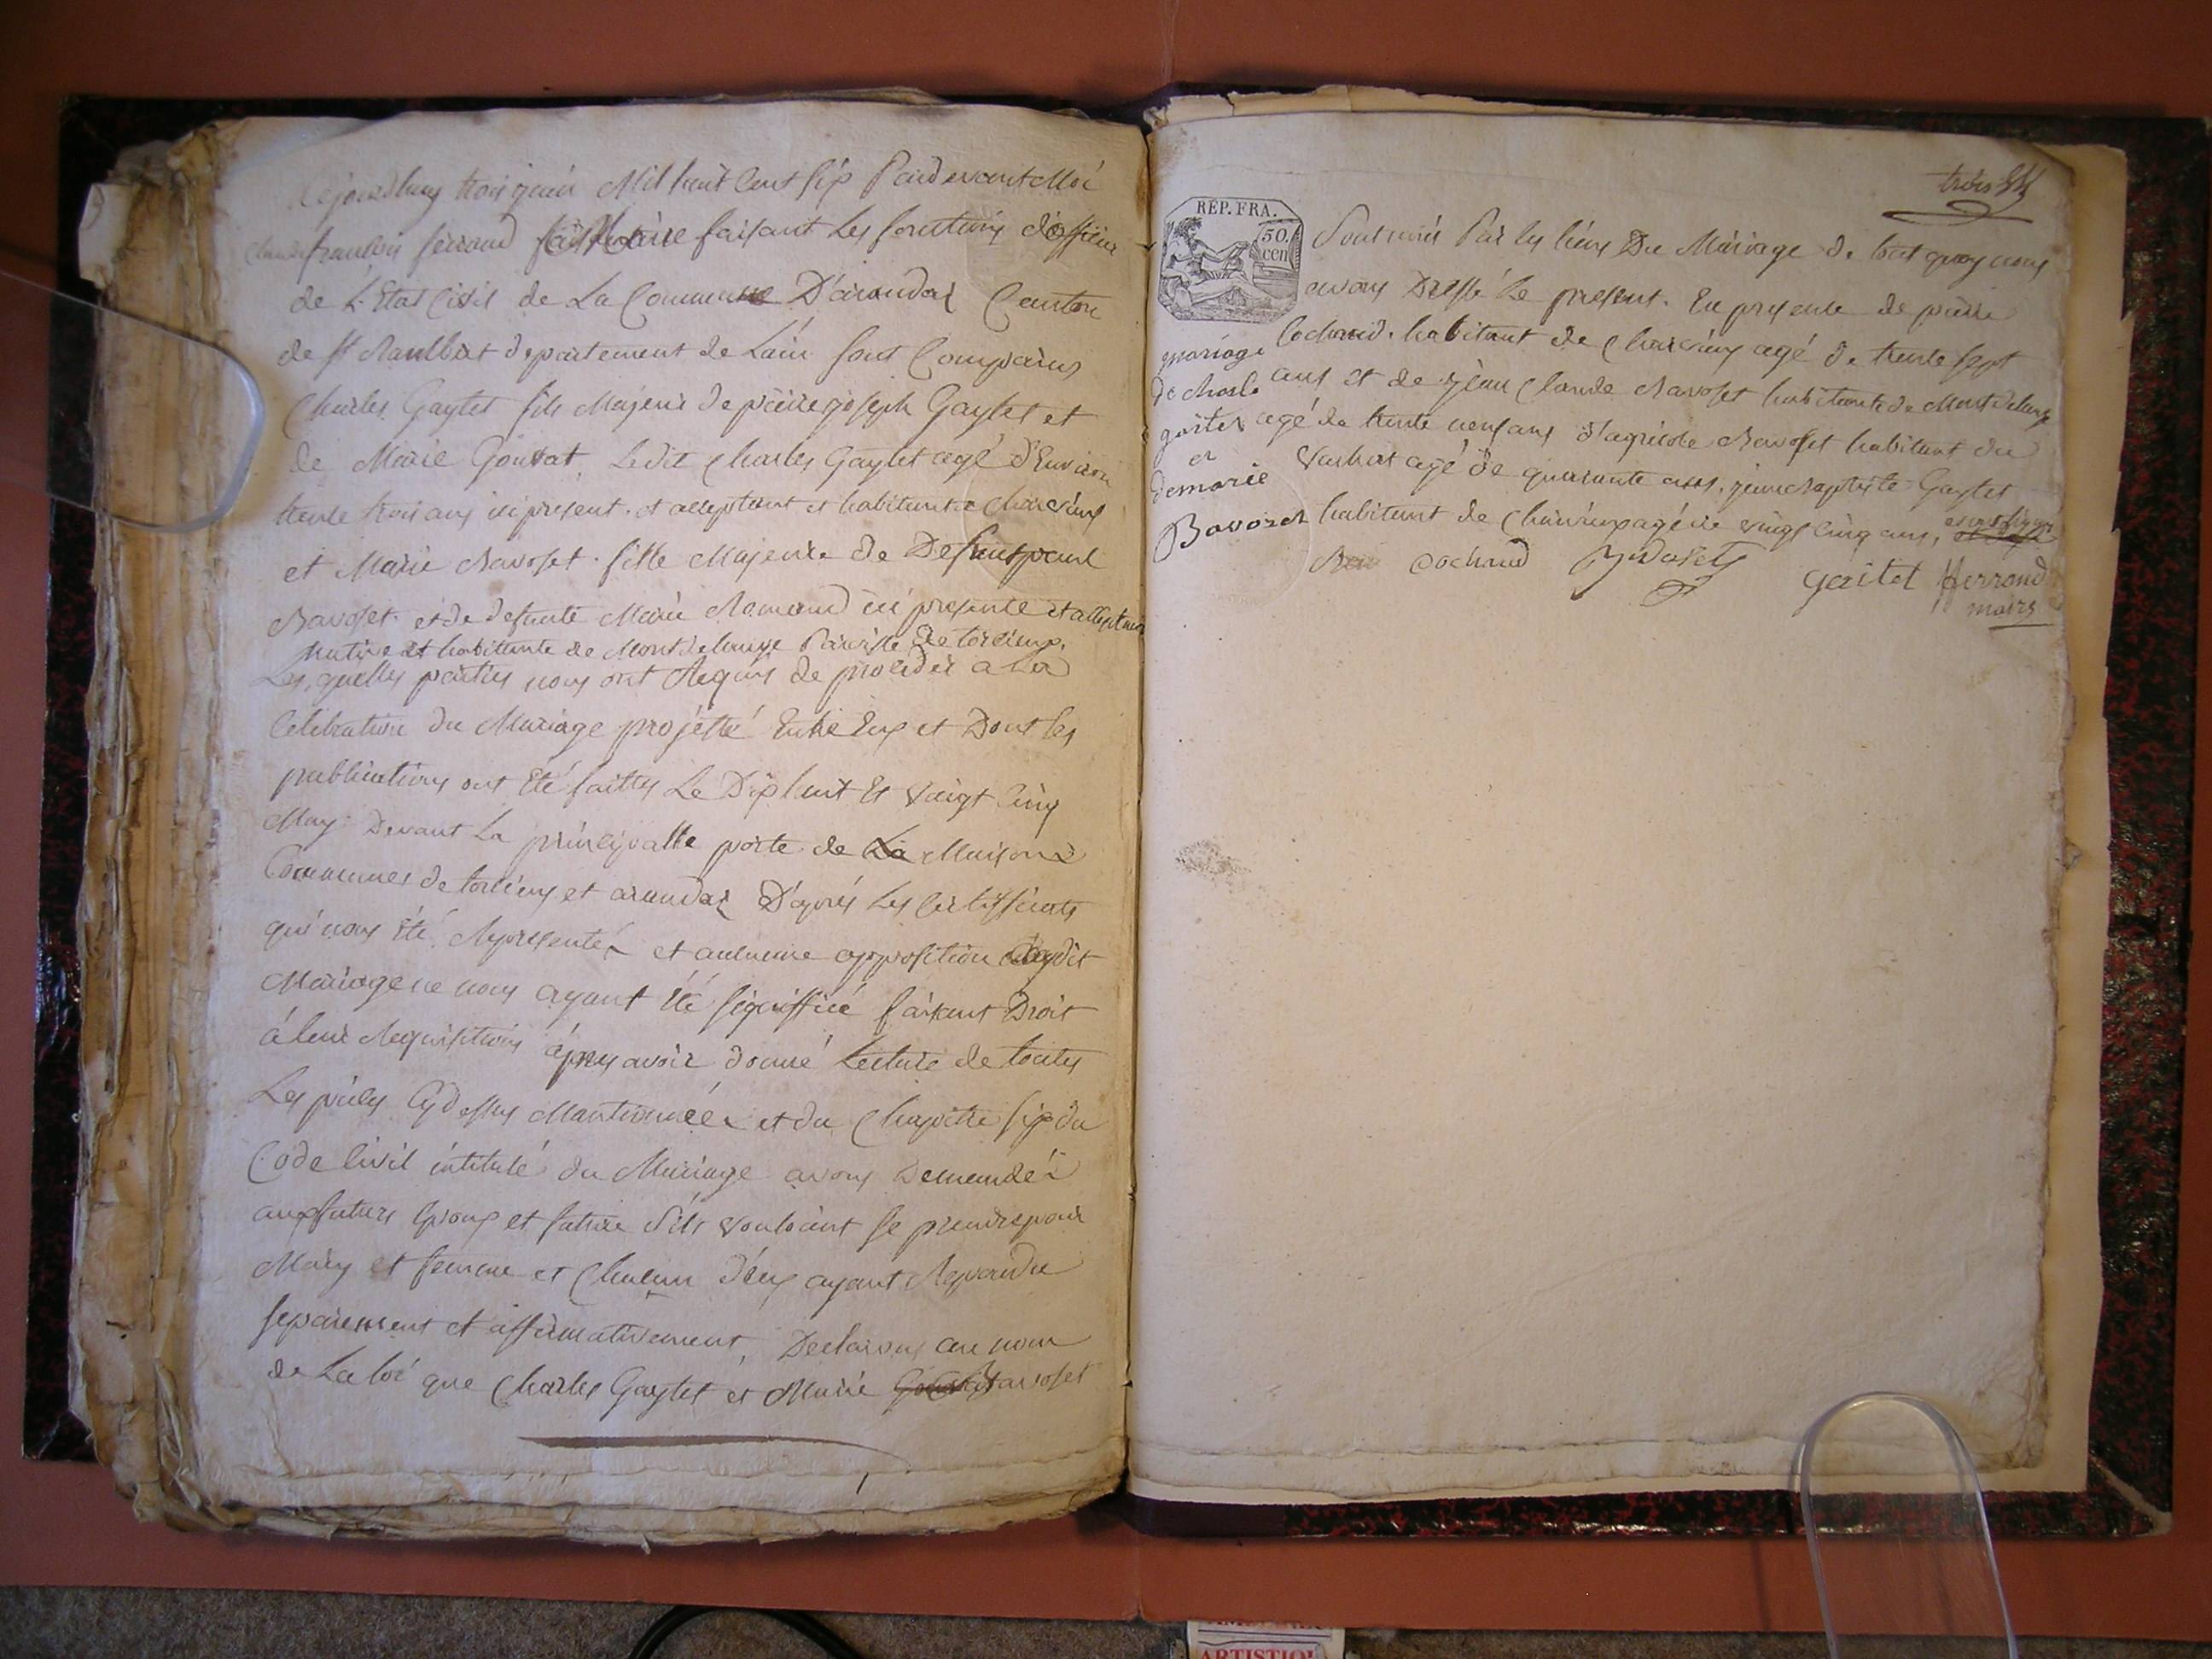 cejourdhuy trois juin Mil huit Cent six Pardevant Moi
Claude françois ferrand Maire faisant Les fonctions d'officier
de L'Etat Civil de La Commune D'arandas Canton
de St Rambert departement de Lain sont Comparus
Charles Gaytet fils Majeur de pierre joseph Gaytet et
de Marie Gouvat. Ledit Charles Gaytet agé D'Environ
trente trois ans ici présent et acceptant et habitant a
et Marie Ravoset fille Majeure de Defunt paul
Ravoset et de defunte Marie Romand ici presente et acceptant
Native et habittante de Montdelange Paroisse de torcieux.
Les, quelles parties nous ont Requis de proceder a La
Celebration du Mariage projetté Entre Eux et Dont les
publications ont Eté faittes Le Dix huit Et vaigt Cinq
May Devant La principalle porte de La Maison
Communes de torcieux et arandas D'aprés Les Certifficats
qui nous Eté Representés et aucune opposition audit
Mariage ne nous ayant Eté signiffiée faisant Droit
á leur Requisitions aprés avoir donné Lecture de toutes
Les piéces Cy dessus Mantionnées et du Chapitre six du
Code Civil intitulé du Mariage avons Demandé
aux futurs Epoux et future S'ils vouloint se prendre pour
Mary et femme et Chacun d'eux ayant Repondu
separement et affirmativement, Declarons au nom
de La loi que Charles Gaytet et Marie Ravoset
trois
RÉP. FRA.
50.
cen
Sont unis Par les liens Du Mariage de tout quoy nous
avons Dressé Le present. En presence de pierre
Cochaud. habitant de agé de trente sept
ans et de jean Claude Ravoset habitant de Montdelange
agé de trente neuf ans d'agricole Ravoset habitant du
agé de quarante ans. jean Baptiste Gaytet
habitant de agé de vingt Cinq ans,
mariage
de charle
gaitet
et
de marie
Bavozet
Cochaud Gaitet fferrand
maire